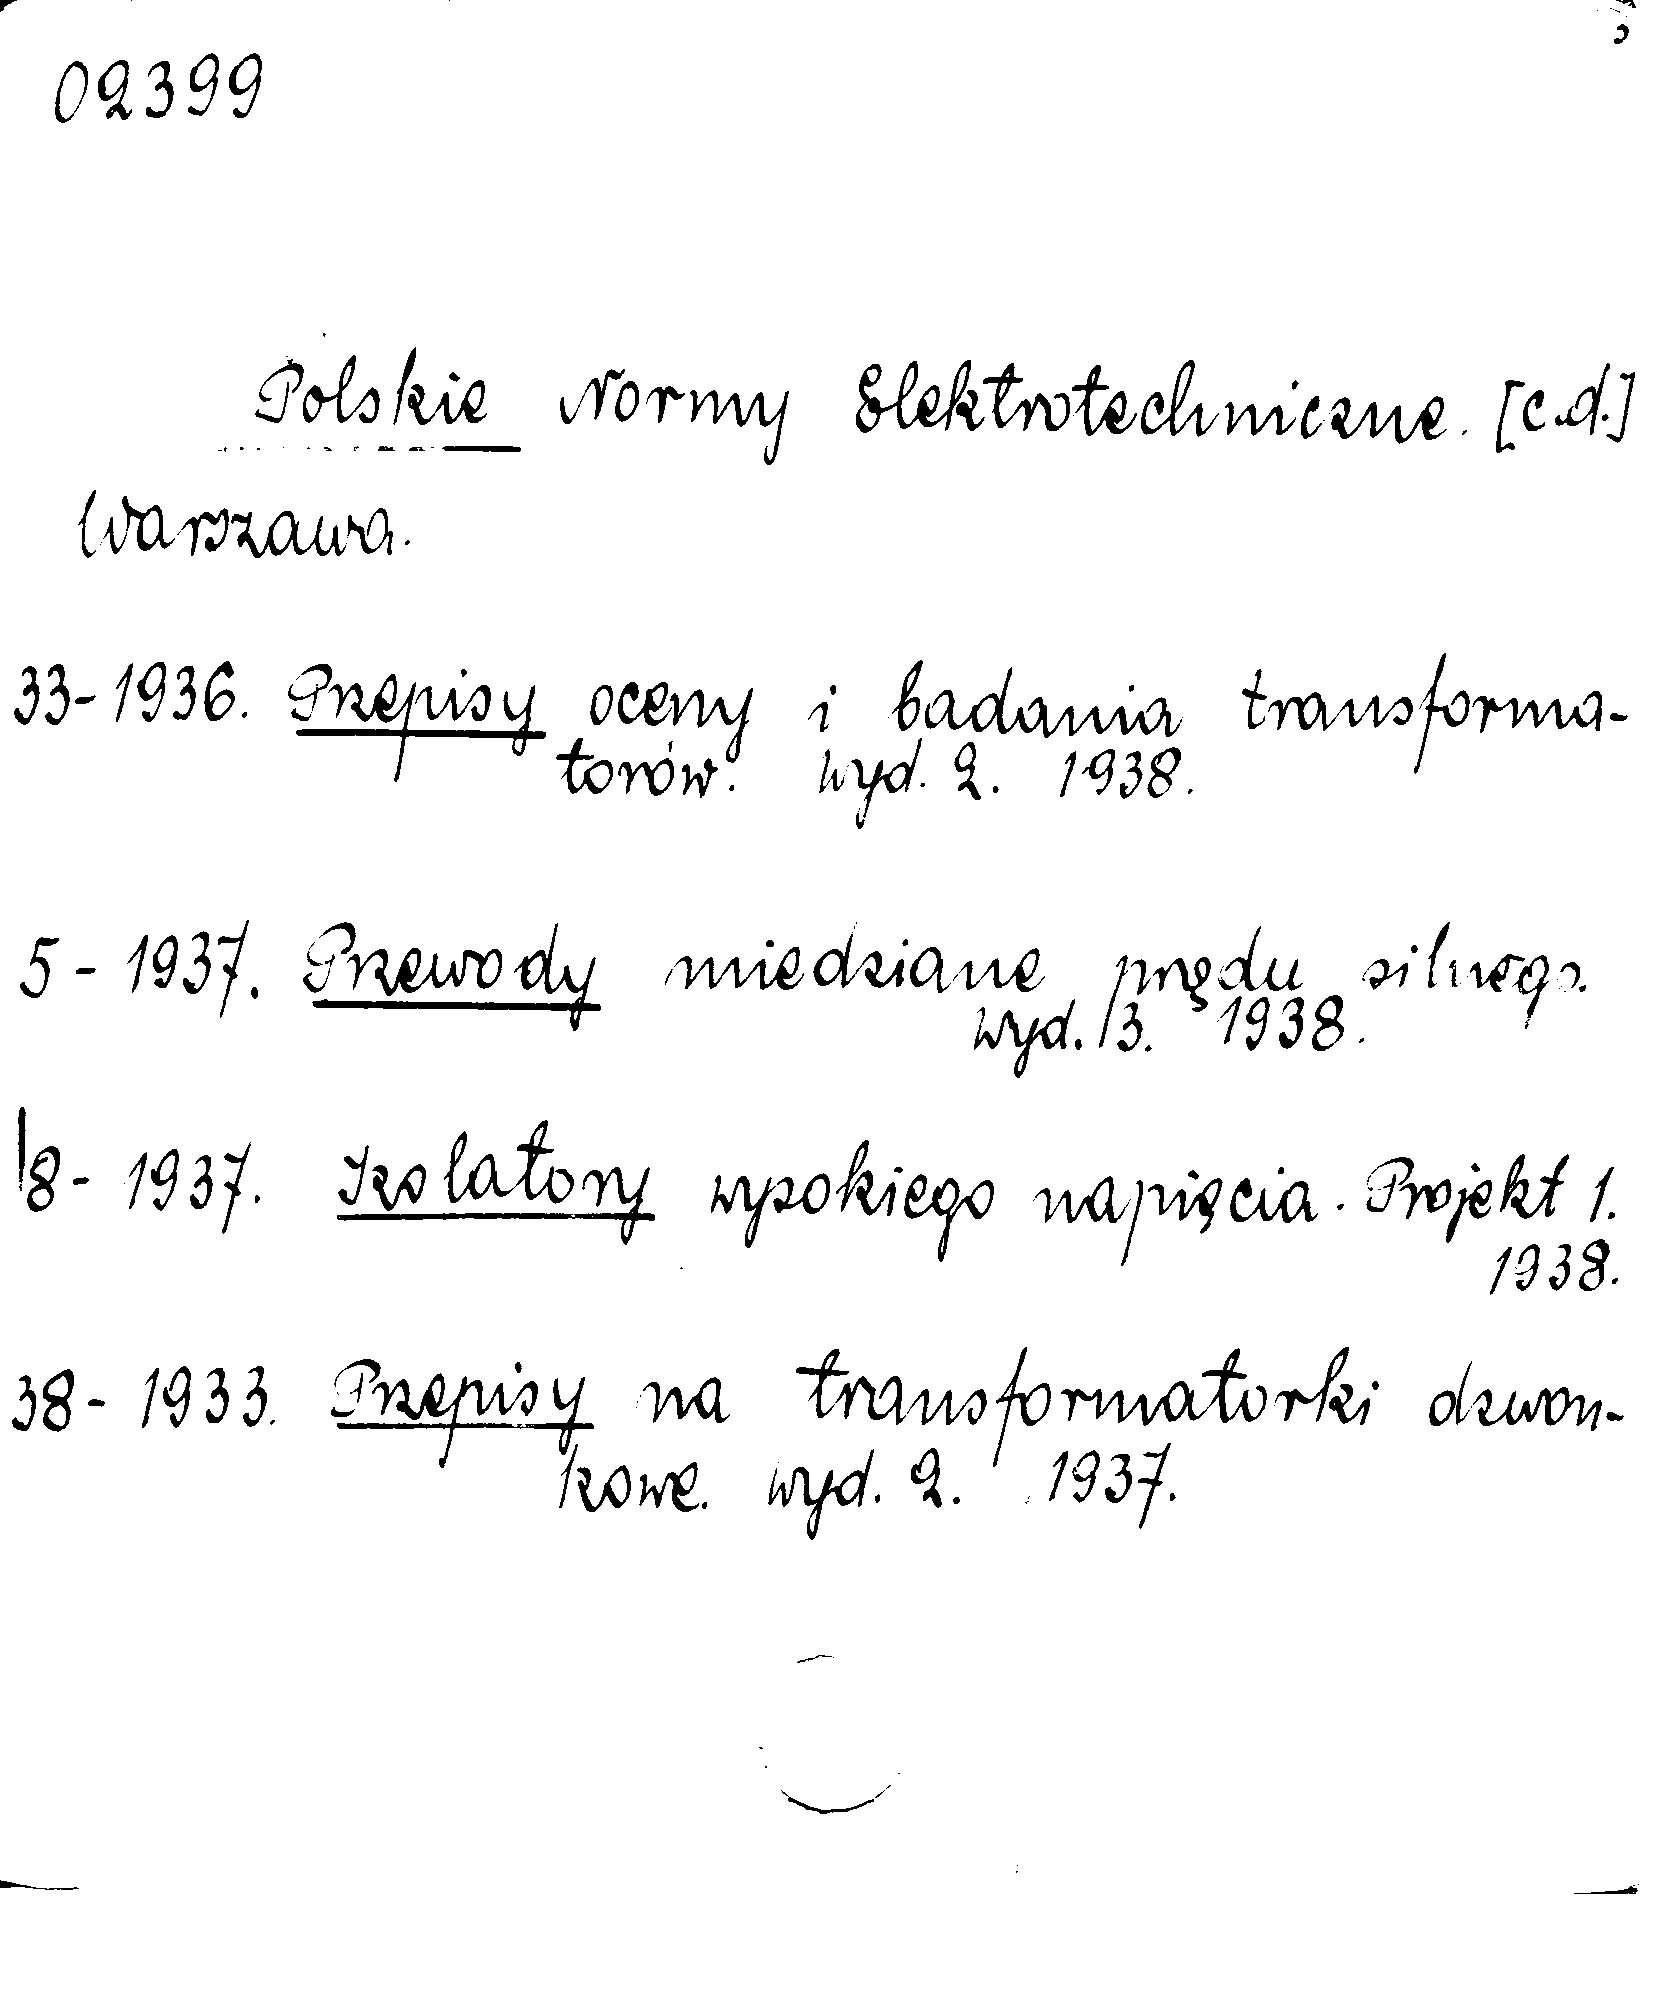 02399
Polskie Normy Elektrotechniczne. [c.d.]
Warszawa.
33-1936. Przepisy oceny i badania transforma-
torów. wyd. 2. 1938.
5-1937. Przewody miedziane prądu silnego.
wyd. 3. 1938.
8-1937. Izolatory wysokiego napięcia. Projekt 1.
1938.
38-1933. Przepisy na transformatorki dzwon-
kowe. wyd. 2. 1937.